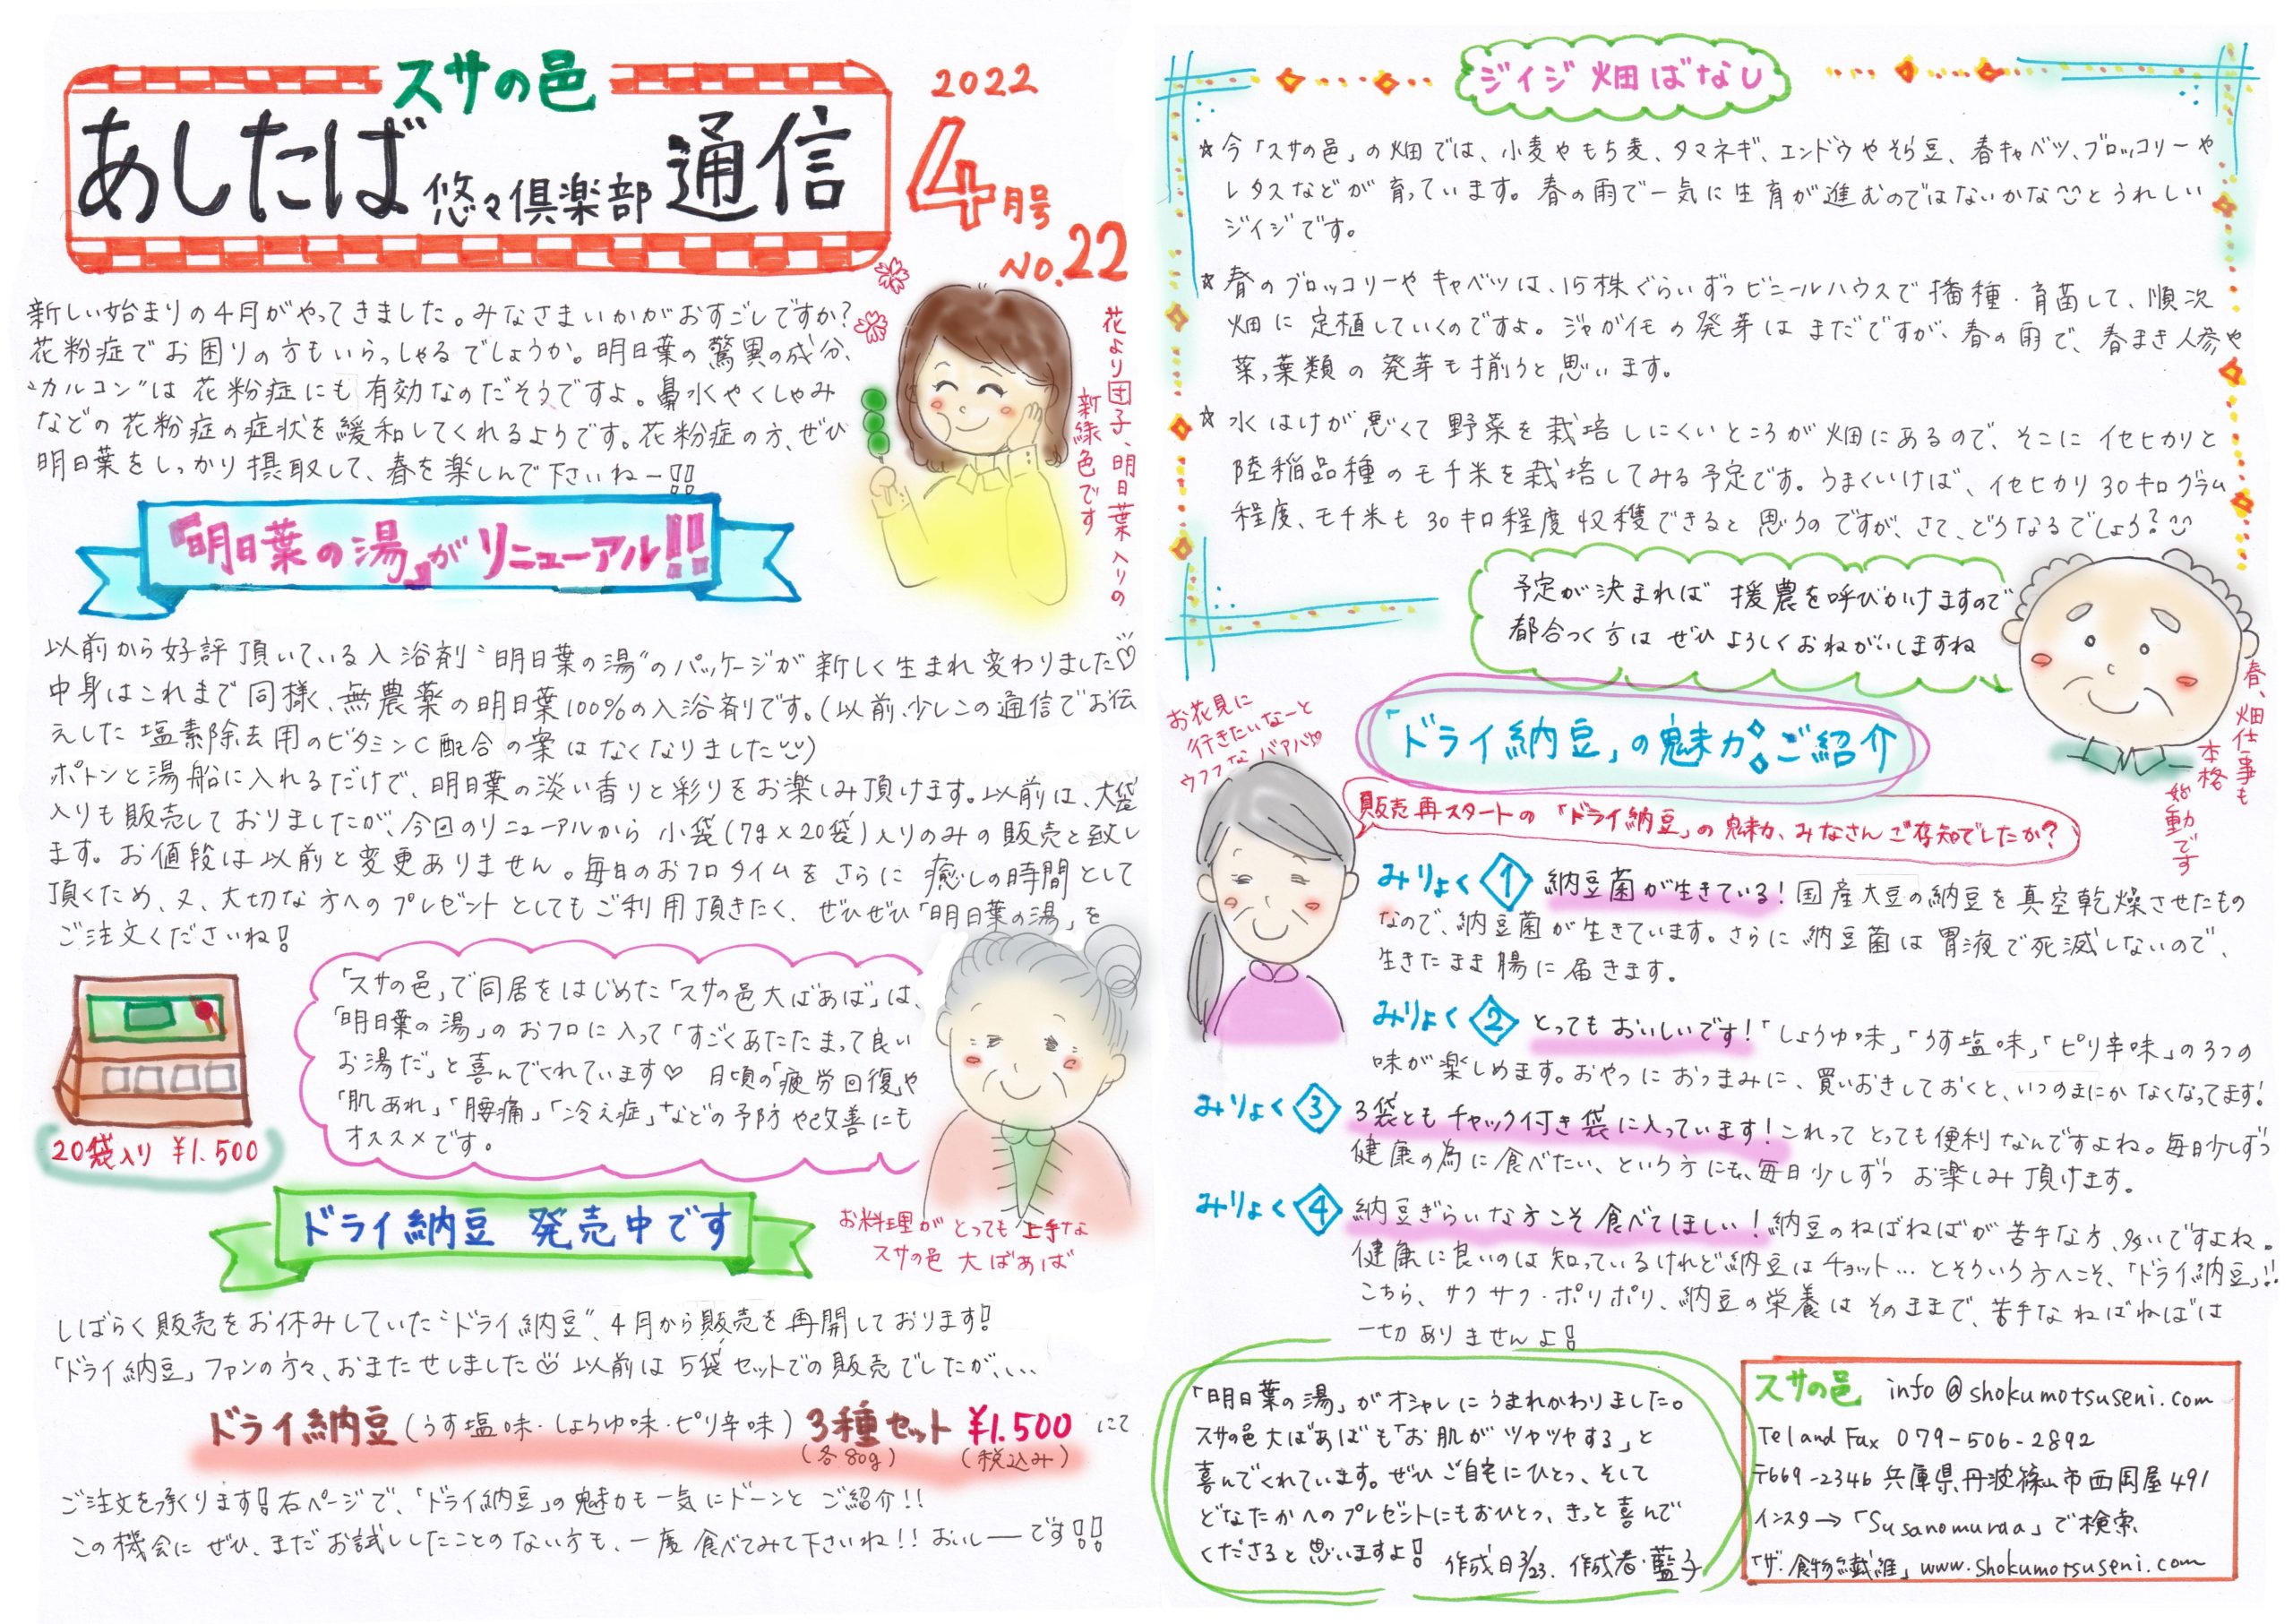 スサの邑
あしたば 悠々倶楽部 通信
2022
4月号
No.22
新しい始まりの4月がやってきました。みなさまいかがおすごしですか?
花粉症でお困りの方もいらっしゃるでしょうか。明日葉の驚異の成分、
"カルコン"は花粉症にも有効なのだそうですよ。鼻水やくしゃみ
などの花粉症の症状を緩和してくれるようです。花粉症の方、ぜひ
明日葉をしっかり摂取して、春を楽しんで下さいねー!!
花より団子、明日葉入りの
新緑色です
「明日葉の湯」がリニューアル!!
以前から好評頂いている入浴剤"明日葉の湯"のパッケージが新しく生まれ変わりました♡
中身はこれまで同様、無農薬の明日葉100%の入浴剤です。(以前、少しこの通信でお伝
えした塩素除去用のビタミンC配合の案はなくなりました)
ポトンと湯船に入れるだけで、明日葉の淡い香りと彩りをお楽しみ頂けます。以前は、大袋
入りも販売しておりましたが、今回のリニューアルから小袋(7g×20袋)入りのみの販売と致し
ます。お値段は以前と変更ありません。毎日のおフロタイムをさらに癒しの時間として
頂くため、又、大切な方へのプレゼントとしてもご利用頂きたく、ぜひぜひ「明日葉の湯」を
ご注文くださいね!
20袋入り ¥1.500
「スサの邑」で同居をはじめた「スサの邑大ばあば」は、
「明日葉の湯」のおフロに入って「すごくあたたまって良い
お湯だ」と喜んでくれています♡ 日頃の「疲労回復」や
「肌あれ」「腰痛」「冷え症」などの予防や改善にも
オススメです。
お料理がとっても上手な
スサの邑 大ばあば
ドライ納豆 発売中です
しばらく販売をお休みしていた"ドライ納豆"、4月から販売を再開しております!
「ドライ納豆」ファンの方々、おまたせしました♡ 以前は5袋セットでの販売でしたが、…
ドライ納豆(うす塩味・しょうゆ味・ピリ辛味)3種セット ¥1.500 にて
(各80g) (税込み)
ご注文を承ります!右ページで、「ドライ納豆」の魅力も一気にドーンとご紹介!!
この機会にぜひ、まだお試ししたことのない方も、一度食べてみて下さいね!!おいしーーです!!
ジイジ畑ばなし
☆今「スサの邑」の畑では、小麦やもち麦、タマネギ、エンドウやそら豆、春キャベツ、ブロッコリーや
レタスなどが育っています。春の雨で一気に生育が進むのではないかなとうれしい
ジイジです。
☆春のブロッコリーやキャベツは、15株ぐらいずつビニールハウスで播種・育苗して、順次
畑に定植していくのですよ。ジャガイモの発芽はまだですが、春の雨で、春まき人参や
菜っ葉類の発芽も揃うと思います。
☆水はけが悪くて野菜を栽培しにくいところが畑にあるので、そこにイセヒカリと
陸稲品種のモチ米を栽培してみる予定です。うまくいけば、イセヒカリ30キログラム
程度、モチ米も30キロ程度収穫できると思うのですが、さて、どうなるでしょう?
予定が決まれば援農を呼びかけますので
都合つく方はぜひよろしくおねがいしますね
春、畑仕事も
本格
始動です
お花見に
行きたいなーと
ウフフなバアバ
「ドライ納豆」の魅力ご紹介
販売再スタートの「ドライ納豆」の魅力、みなさんご存知でしたか?
みりょく1 納豆菌が生きている!国産大豆の納豆を真空乾燥させたもの
なので、納豆菌が生きています。さらに納豆菌は胃液で死滅しないので、
生きたまま腸に届きます。
みりょく2 とってもおいしいです!「しょうゆ味」「うす塩味」「ピリ辛味」の3つの
味が楽しめます。おやつにおつまみに、買いおきしておくと、いつのまにかなくなってます!
みりょく3 3袋ともチャック付き袋に入っています!これってとっても便利なんですよね。毎日少しずつ
健康の為に食べたい、という方にも、毎日少しずつお楽しみ頂けます。
みりょく4 納豆ぎらいな方こそ食べてほしい!納豆のねばねばが苦手な方、多いですよね。
健康に良いのは知っているけれど納豆はチョット…とそういう方へこそ、「ドライ納豆」!!
こちら、サクサク・ポリポリ、納豆の栄養はそのままで、苦手なねばねばは
一切ありませんよ!
「明日葉の湯」がオシャレにうまれかわりました。
スサの邑大ばあばも「お肌がツヤツヤする」と
喜んでくれています。ぜひご自宅にひとつ、そして
どなたかへのプレゼントにもおひとつ、きっと喜んで
くださると思いますよ! 作成日3/23. 作成者・藍子
スサの邑 info@shokumotsuseni.com
Tel and Fax 079-506-2892
〒669-2346 兵庫県丹波篠山市西岡屋491
インスタ→「Susanomuraa」で検索
「ザ・食物繊維」www.shokumotsuseni.com